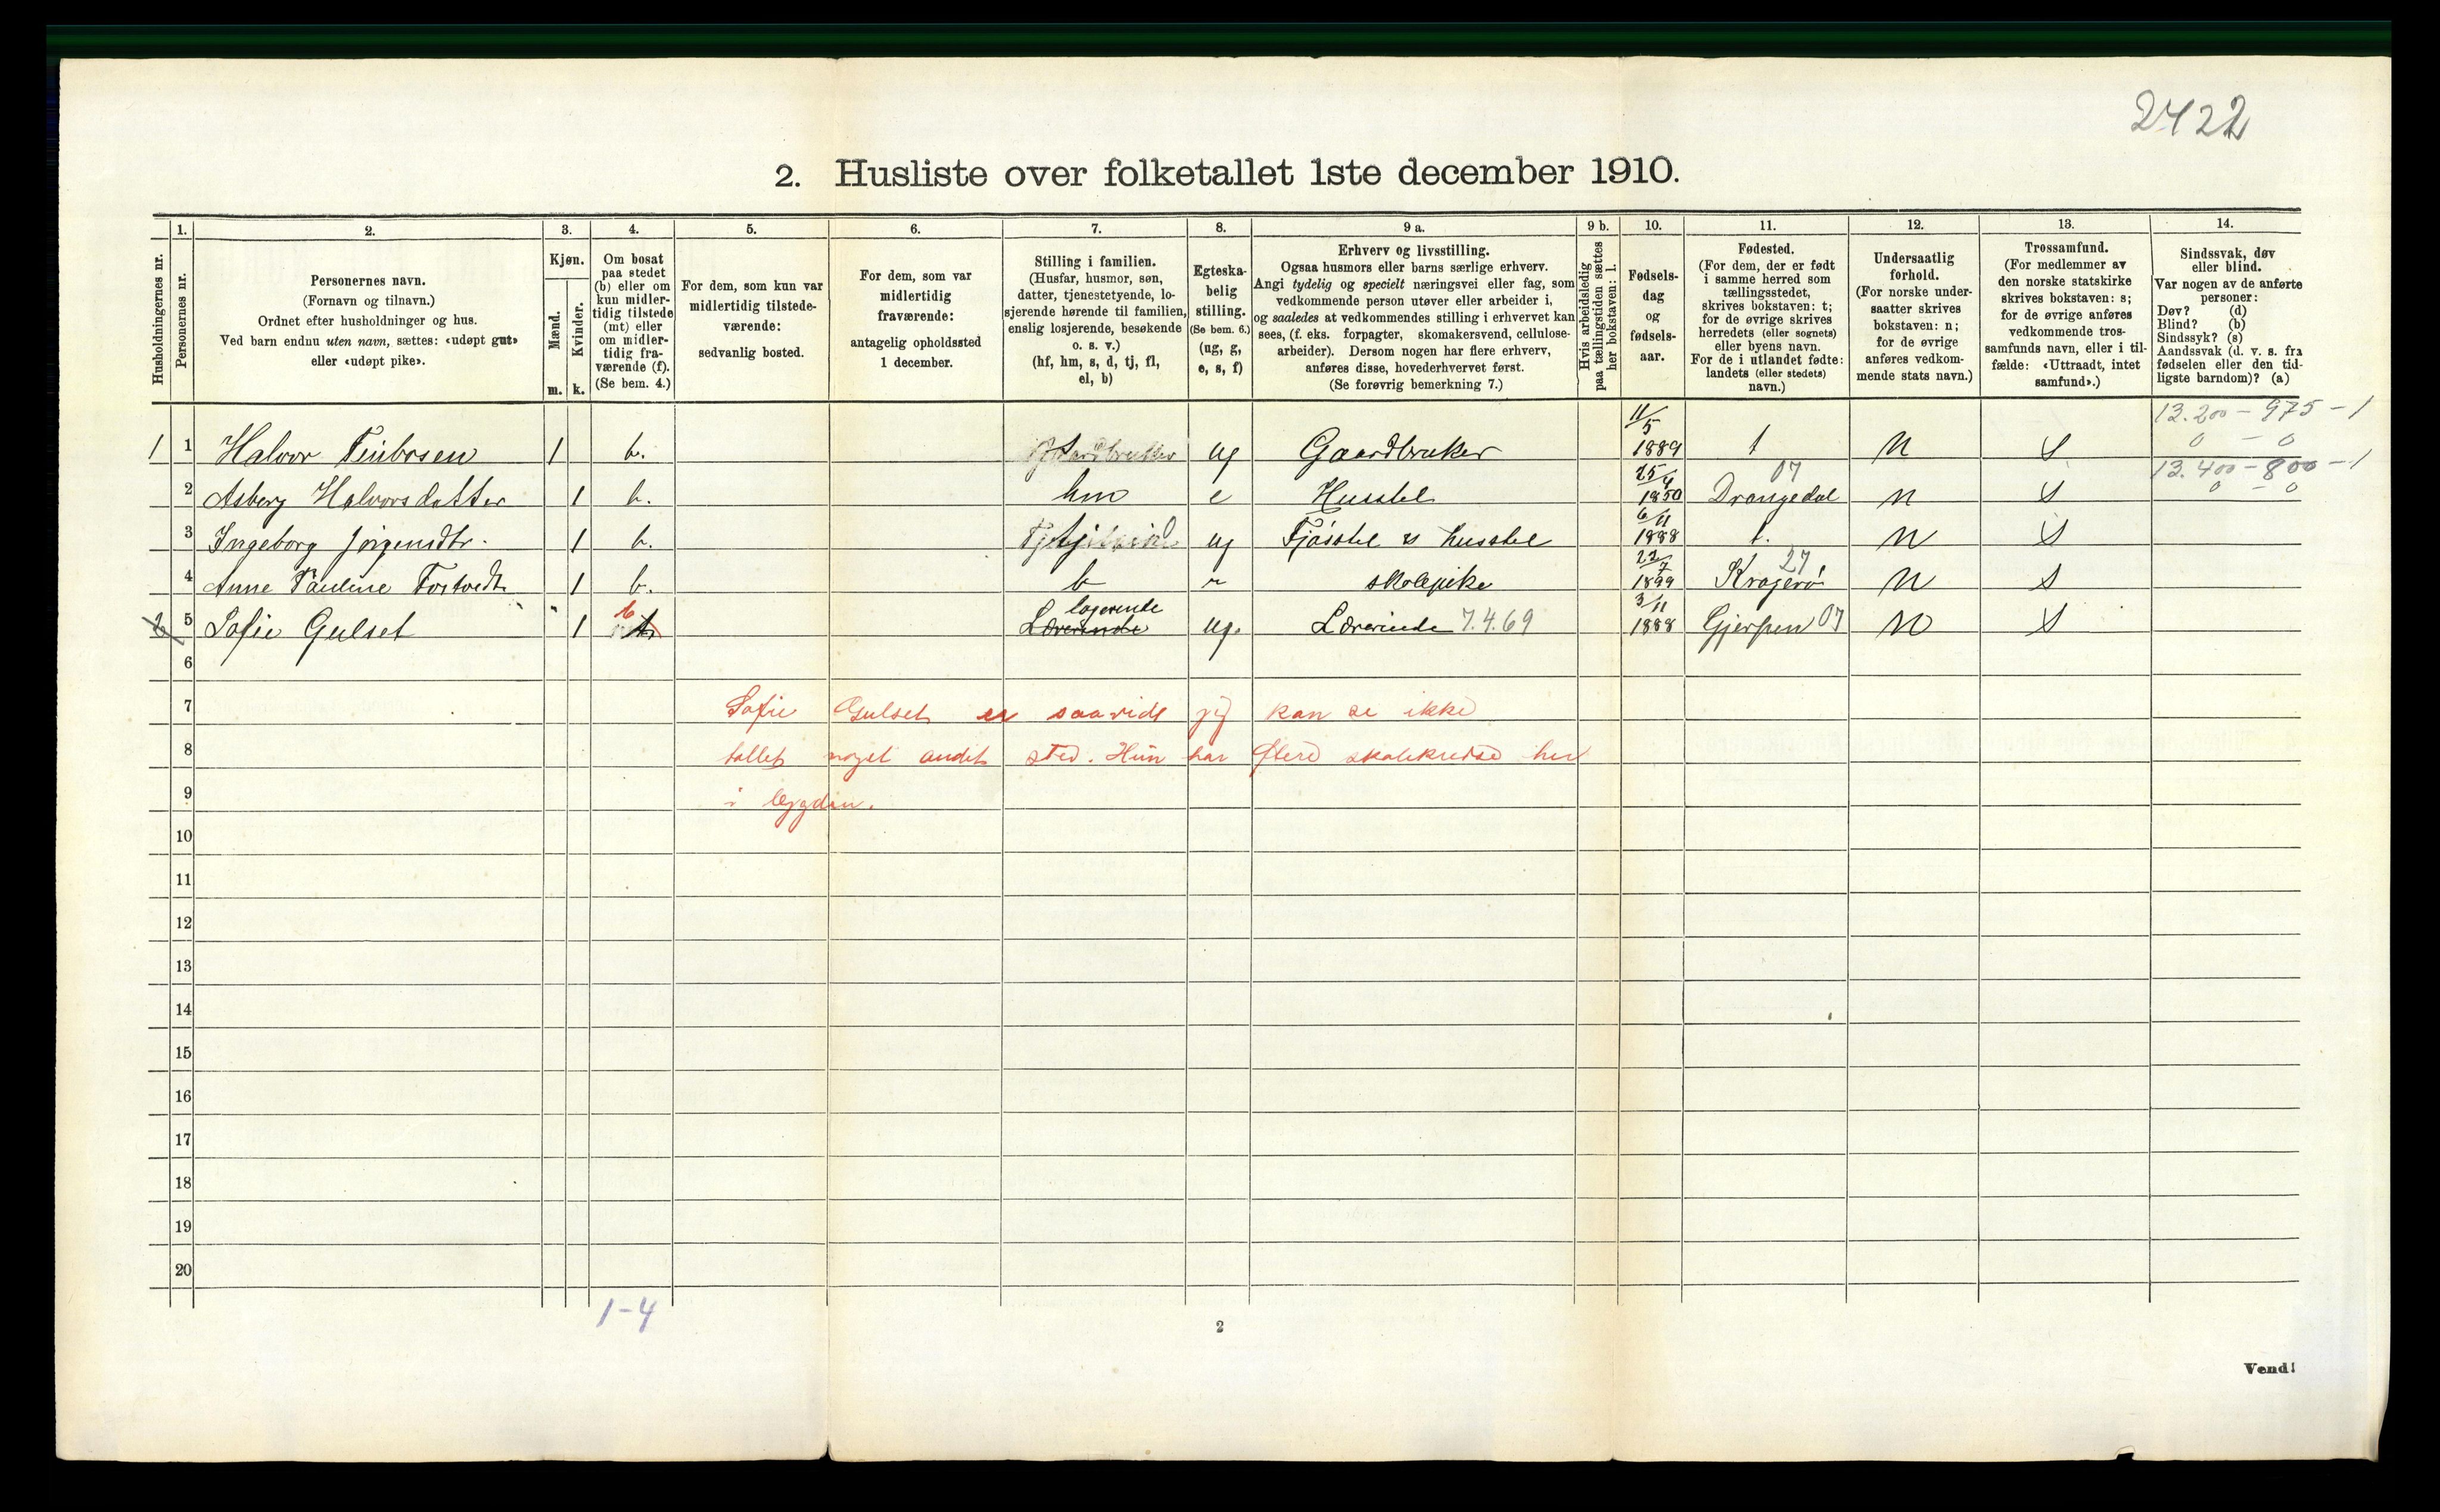 2422
2. Husliste over folketallet 1ste december 1910.
Husholdningernes nr.
1.
Personernes nr.
2.
Personernes navn.
(Fornavn og tilnavn.)
Ordnet efter husholdninger og hus.
Ved barn endnu uten navn, sættes: «udøpt gut»
eller «udøpt pike».
3.
Kjøn.
Mænd.
Kvinder.
m. k.
4.
Om bosat
paa stedet
(b) eller om
kun midler-
tidig tilstede
(mt) eller
om midler-
tidig fra-
værende (f).
(Se bem. 4.)
5.
For dem, som kun var
midlertidig tilstede-
værende:
sedvanlig bosted.
6.
For dem, som var
midlertidig
fraværende:
antagelig opholdssted
1 december.
7.
Stilling i familien.
(Husfar, husmor, søn,
datter, tjenestetyende, lo-
sjerende hørende til familien,
enslig losjerende, besøkende
o. s. v.)
(hf, hm, s, d, tj, fl,
el, b)
8.
Egteska-
belig
stilling.
(Se bem. 6.)
(ug, g,
e, s, f)
9 a.
Erhverv og livsstilling.
Ogsaa husmors eller barns særlige erhverv.
Angi tydelig og specielt næringsvei eller fag, som
vedkommende person utøver eller arbeider i,
og saaledes at vedkommendes stilling i erhvervet kan
sees, (f. eks. forpagter, skomakersvend, cellulose-
arbeider). Dersom nogen har flere erhverv,
anføres disse, hovederhvervet først.
(Se forøvrig bemerkning 7.)
9 b.
Hvis arbeidsledig
paa tællingstiden sættes
her bokstaven: l.
10.
Fødsels-
dag
og
fødsels-
aar.
11.
Fødested.
(For dem, der er født
i samme herred som
tællingsstedet,
skrives bokstaven: t;
for de øvrige skrives
herredets (eller sognets)
eller byens navn.
For de i utlandet fødte:
landets (eller stedets)
navn.)
12.
Undersaatlig
forhold.
(For norske under-
saatter skrives
bokstaven: n;
for de øvrige
anføres vedkom-
mende stats navn.)
13.
Trossamfund.
(For medlemmer av
den norske statskirke
skrives bokstaven: s;
for de øvrige anføres
vedkommende tros-
samfunds navn, eller i til-
fælde: «Uttraadt, intet
samfund».)
14.
Sindssvak, døv
eller blind.
Var nogen av de anførte
personer:
Døv? (d)
Blind? (b)
Sindssyk? (s)
Aandssvak (d. v. s. fra
fødselen eller den tid-
ligste barndom)? (a)
13.200 - 975 - 1
0 - 0
1 1 Halvor 1 b. ug Gaardbruker 11/5 1889 t n s
13.400 - 800 - 1
0 - 0
2 Asberg Halvorsdatter 1 b. hm e Husstel 1850 Drangedal 07 n s
3 Ingeborg Jørgensdtr. 1 b. tj ug Fjøsstel & husstel 6/11 1888 t. n s
4 Anne Pauline 1 b. b skolepike 1899 Kragerø 27 n s
2 5 Sofie Gulset 1 b Lærerinde logerende ug. Lærerinde 7.4.69 3/11 1888 Gjerpen 07 n s
6
7 Sofie Gulset er saavidt jeg kan se ikke
8 tallet noget andet sted. Hun har flere skolekredse her
9 i bygden.
10
11
12
13
14
15
16
17
18
19
20
1-4
2
Vend!